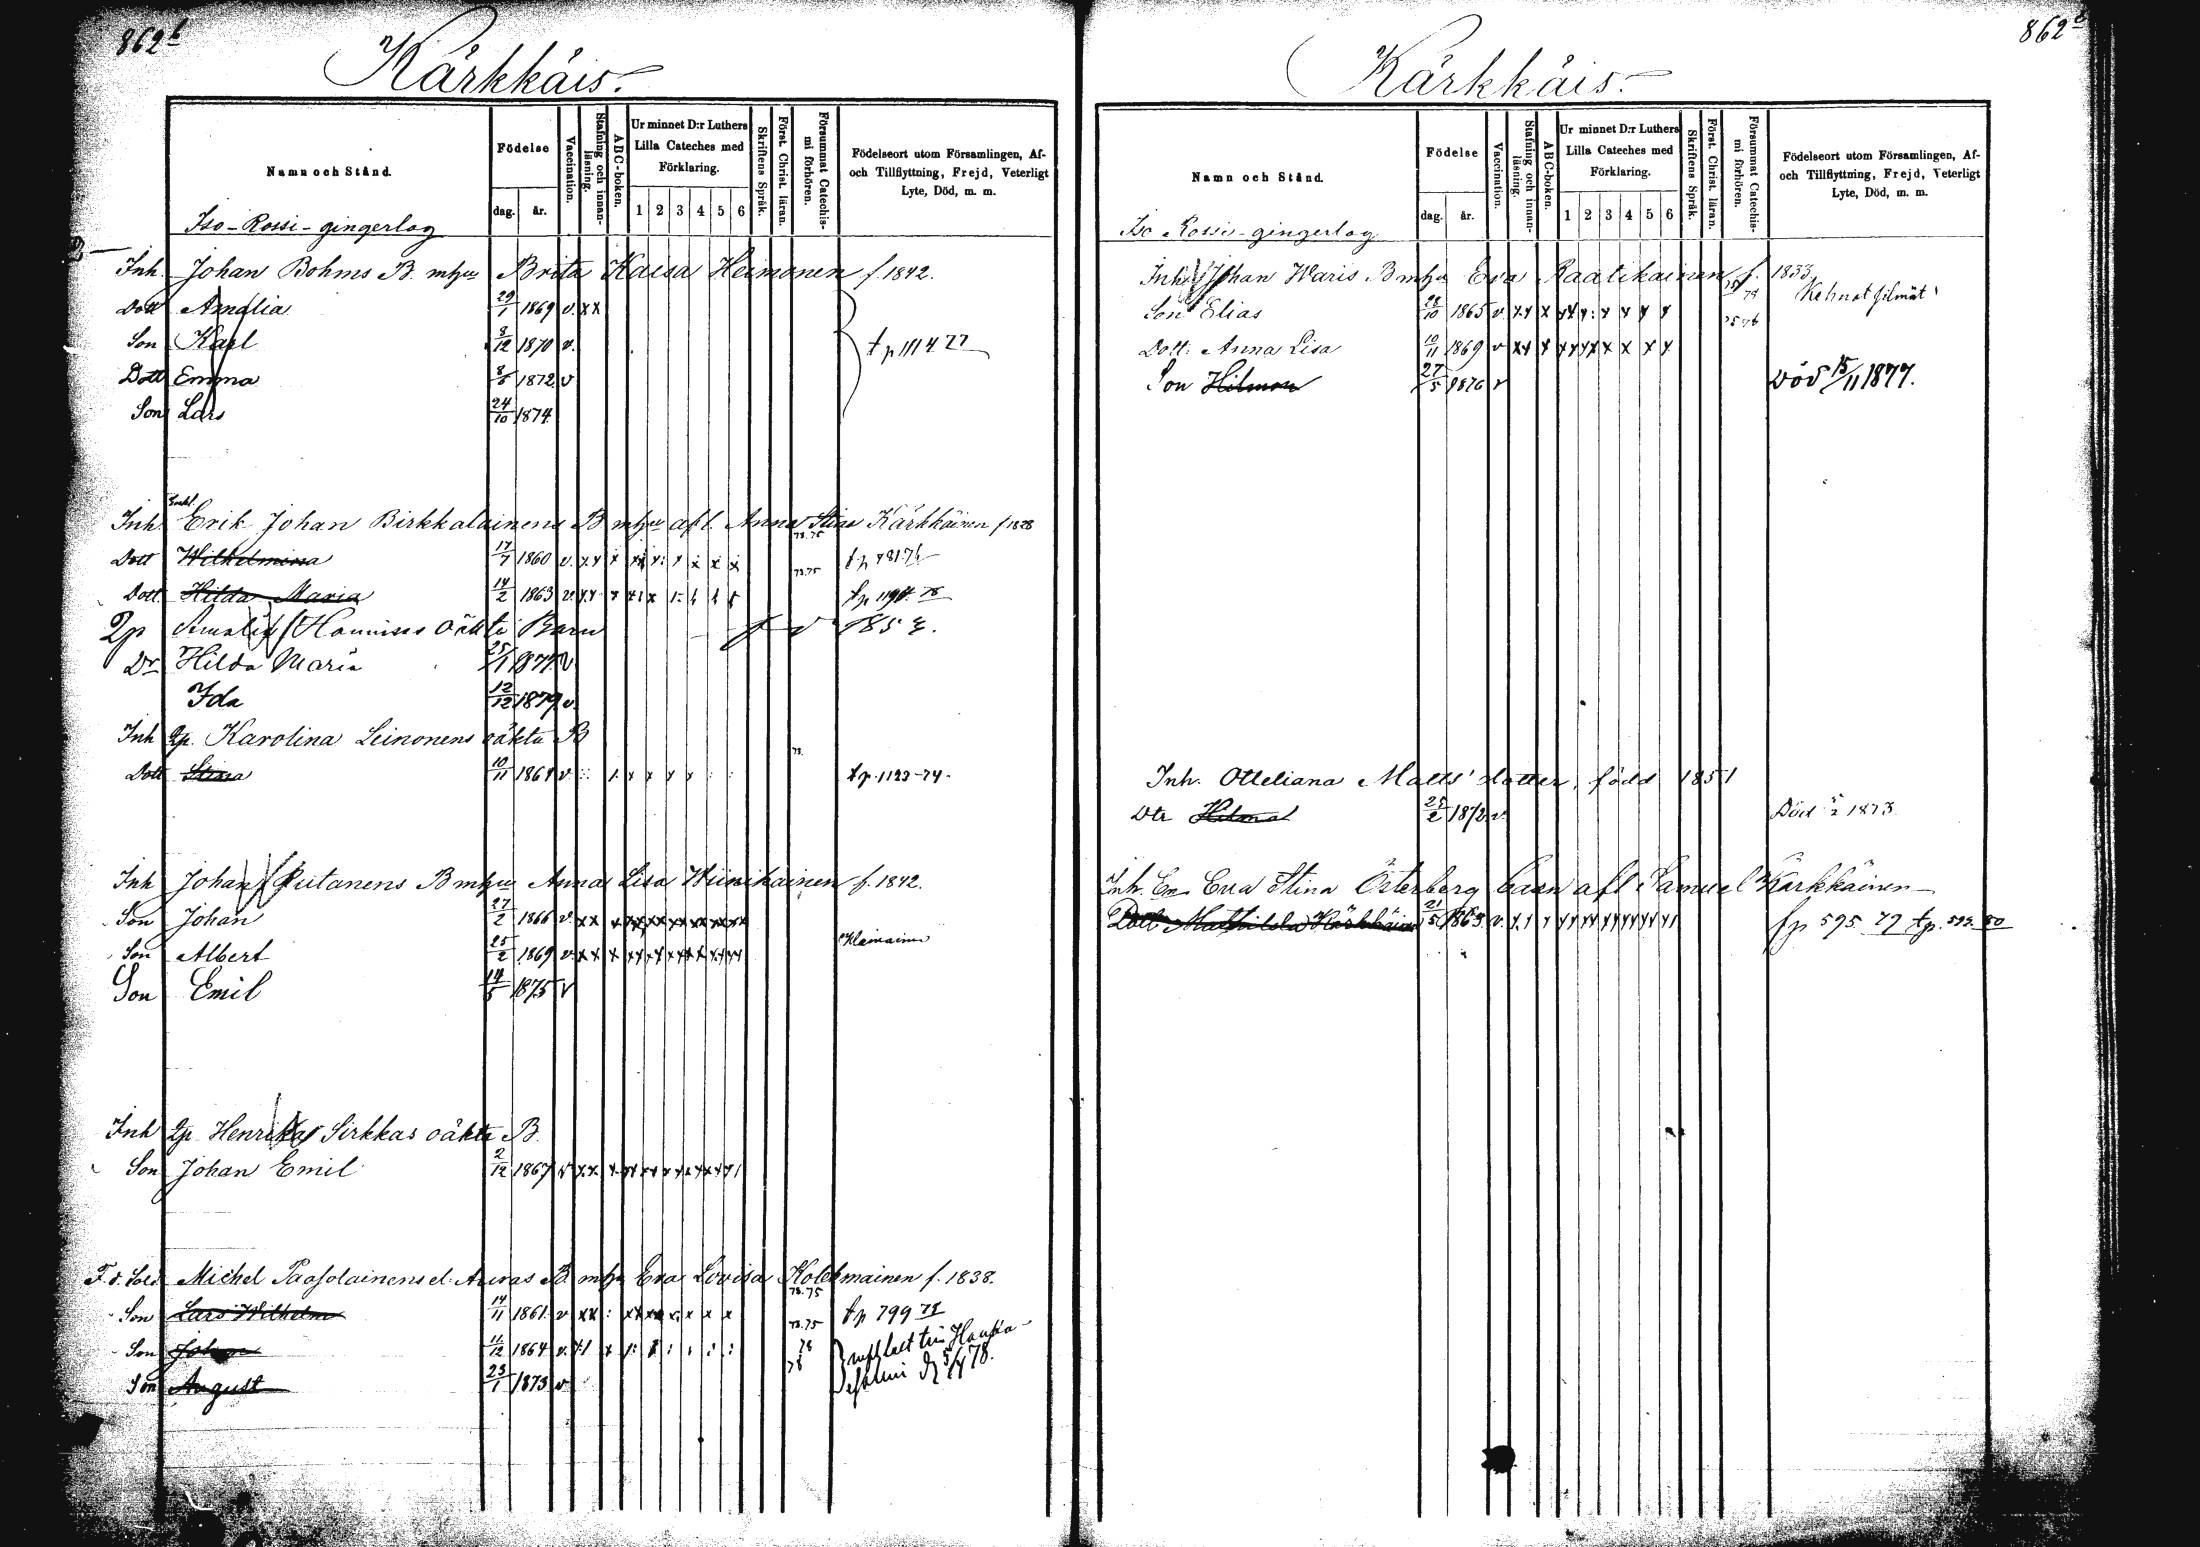 862 b
Kärkkäis.
Namn och Stånd.
Födelse
dag.
år.
Vaccination.
Stafning och innan-läsning.
ABC-boken.
Ur minnet D:r Luthers Lilla Cateches med Förklaring.
1 2 3 4 5 6
Skriftens Språk.
Först. Christ. läran.
Försummat Catechis-mi förhören.
Födelseort utom Församlingen, Af- och Tillflyttning, Frejd, Veterligt Lyte, Död, m. m.
Iso-Rossi-gingerlag
Inh. Johan Bohms B. mhu Brita Kaisa Heimonen f. 1842.
Dott Amalia 29/1 1869 v. x x
Son Karl 8/12 1870 v. tp 1114 77
Dott Emma 8/5 1872 v
Son Lars 24/10 1874
Inh. Enkl. Erik Johan Birkkalainens B mhu afl. Anna Stina Kärkkäinen f 1828
Dott Wilhelmina 17/7 1860 v. 73.75
Dott. Hilda Maria 14/2 1863 v. 73.75
Qp Amalia Hannises oäkta Barn
Dr Hilda Maria 25/1 1877 v
Ida 12/12 1879 v.
Inh Qp. Karolina Leinonens oäkta B
Dott Stina 10/11 1861 v. tp. 1123-74.
Inh Johan Putanens B mhu Anna Lisa Wiinikainen f. 1842.
Son Johan 27/2 1866 v. x x
Son Albert 25/2 1869 v. x x
Son Emil 14/5 1875 v
Inh Qp Henrika Sirkkas oäkta B.
Son Johan Emil 2/12 1867 v x x
F. d. Sold Michel Paasolainens el. Auras B mhu Eva Lovisa Kolehmainen f. 1838.
Son Lars Wilhelm 14/11 1861 v x x 73.75 tp 799 78
Son Johan 11/12 1864 v. 73.75
Son August 23/1 1873 v 78
862 b
Kärkkäis.
Namn och Stånd.
Födelse
dag.
år.
Vaccination.
Stafning och innan-läsning.
ABC-boken.
Ur minnet D:r Luthers Lilla Cateches med Förklaring.
1 2 3 4 5 6
Skriftens Språk.
Först. Christ. läran.
Försummat Catechis-mi förhören.
Födelseort utom Församlingen, Af- och Tillflyttning, Frejd, Veterligt Lyte, Död, m. m.
Iso Rossi-gingerlag
Inh. Johan Waris B mhu Eva Raatikainen f. 1833
Son Elias 28/10 1865 v.
Dott. Anna Lisa 10/11 1869 v
Son Hilmon 27/5 1876 v Död 15/11 1877.
Inh. Otteliana Matts'dotter, född 1851
Dtr Hilma 25/2 1872 v. Död 5/2 1873
Inh. En Eva Stina Österberg barn afl Samuel Kärkkäinen
Dott Mathilda Kärkkäinen 21/5 1863 v. fp 595 77 tp. 593. 80